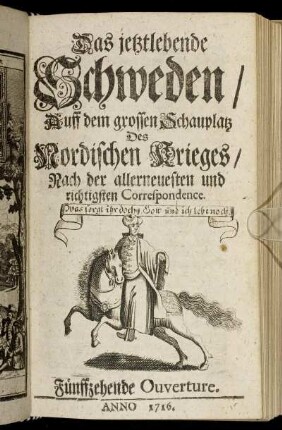 Das jetztlebende
Schweden /
Auff dem grossen Schauplatz
Des
Nordischen Krieges /
Nach der allerneuesten und
richtigsten Correspondence.
ihr doch, Gott und ich lebt noch
Fünffzehende Ouverture.
ANNO 1716.